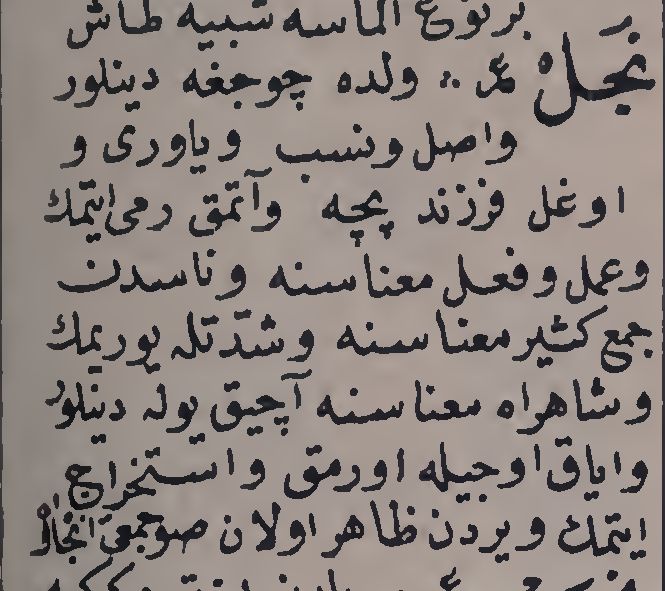 برنوع الماسه شبیه طاش
نَجْلْ ع‍ .. ولده چوجغه دینلور
واصل ونسب ویاوری و
اوغل فرزند پچه وآتمق رمی ایتمك
وعمل وفعل معناسنه وناسدن
جمع كثیر معناسنه وشدتله یوریمك
وشاهراه معناسنه آچیق یوله دینلور
وایاق اوجیله اورمق واستخراج
ایتمك ویردن ظاهر اولان صو جمعی انجال